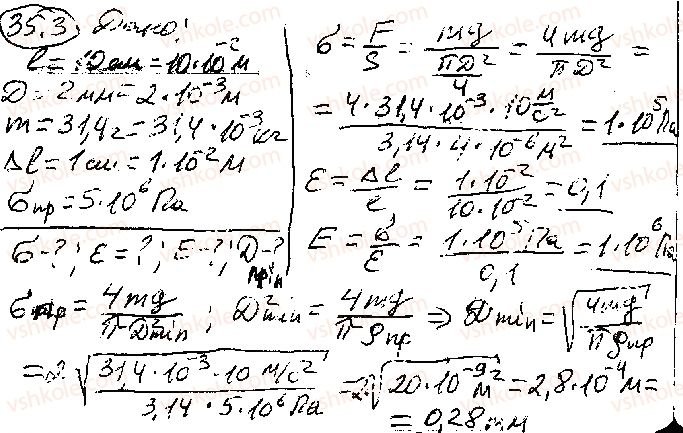 35.3 Дано:
l = 10 см = 10·10⁻² м
D = 2 мм = 2·10⁻³ м
m = 31,4 г = 31,4·10⁻³ кг
Δl = 1 см = 1·10⁻² м
σпр = 5·10⁶ Па
σ-?; ε = ?; E-?; Dmin-?
σ = F/S = mg/(πD²/4) = 4mg/πD² =
= (4·31,4·10⁻³·10 м/с²)/(3,14·4·10⁻⁶ м²) = 1·10⁵ Па
ε = Δl/l = (1·10⁻²)/(10·10⁻²) = 0,1
E = σ/ε = (1·10⁵ Па)/0,1 = 1·10⁶ Па
σпр = 4mg/πD²min; D²min = 4mg/πσпр ⇒ Dmin = √(4mg/πσпр)
= 2√((31,4·10⁻³·10 м/с²)/(3,14·5·10⁶ Па)) = 2√(20·10⁻⁹ м²) = 2,8·10⁻⁴ м =
= 0,28 мм
vshkole.com